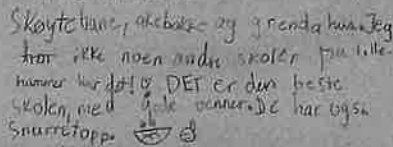 Skøytebane, akebakke og grendahus. Jeg
tror ikke noen andre skoler på Lille-
hammer har det! DET er den beste
skolen, med gode venner. De har også
Snurretopp.